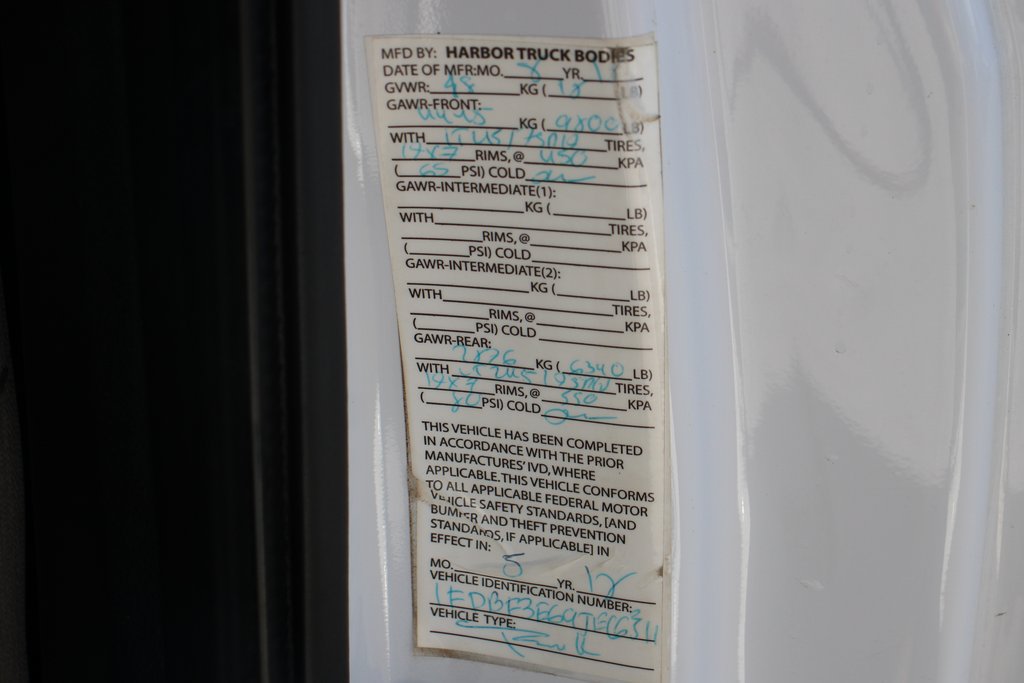 MFD BY: HARBOR TRUCK BODIES
DATE OF MFR:MO. 8 YR.
GVWR: KG ( LB)
GAWR-FRONT:
KG ( LB)
WITH TIRES,
RIMS, @ 450 KPA
( 65 PSI) COLD
GAWR-INTERMEDIATE(1):
KG ( LB)
WITH TIRES,
RIMS, @ KPA
( PSI) COLD
GAWR-INTERMEDIATE(2):
KG ( LB)
WITH TIRES,
RIMS, @ KPA
( PSI) COLD
GAWR-REAR:
KG ( 6340 LB)
WITH TIRES,
RIMS, @ 550 KPA
( 80 PSI) COLD
THIS VEHICLE HAS BEEN COMPLETED
IN ACCORDANCE WITH THE PRIOR
MANUFACTURES' IVD, WHERE
APPLICABLE. THIS VEHICLE CONFORMS
TO ALL APPLICABLE FEDERAL MOTOR
VEHICLE SAFETY STANDARDS, [AND
BUMPER AND THEFT PREVENTION
STANDARDS, IF APPLICABLE] IN
EFFECT IN:
MO. 5 YR. 18
VEHICLE IDENTIFICATION NUMBER:
VEHICLE TYPE: